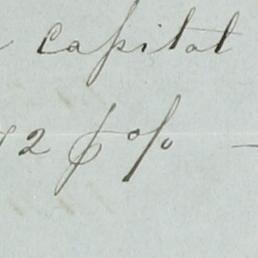 capital
2 $ %